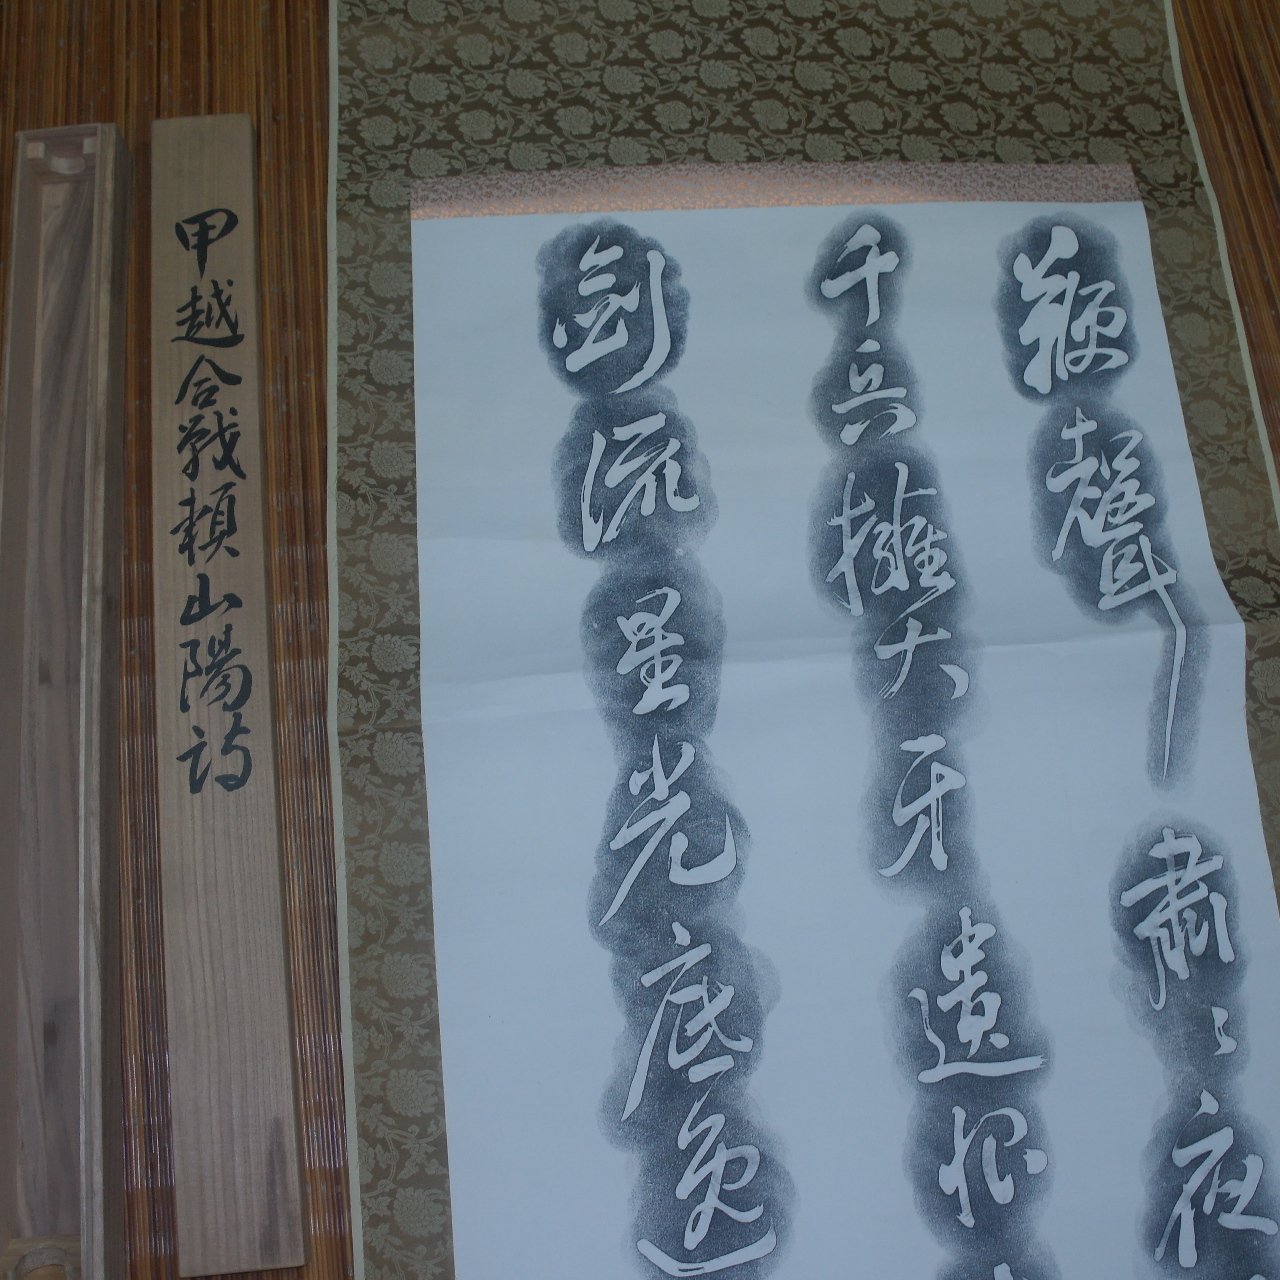 鞭聲肅々夜
千兵擁大牙遺恨
剣流星光底逸
甲越合戦頼山陽詩